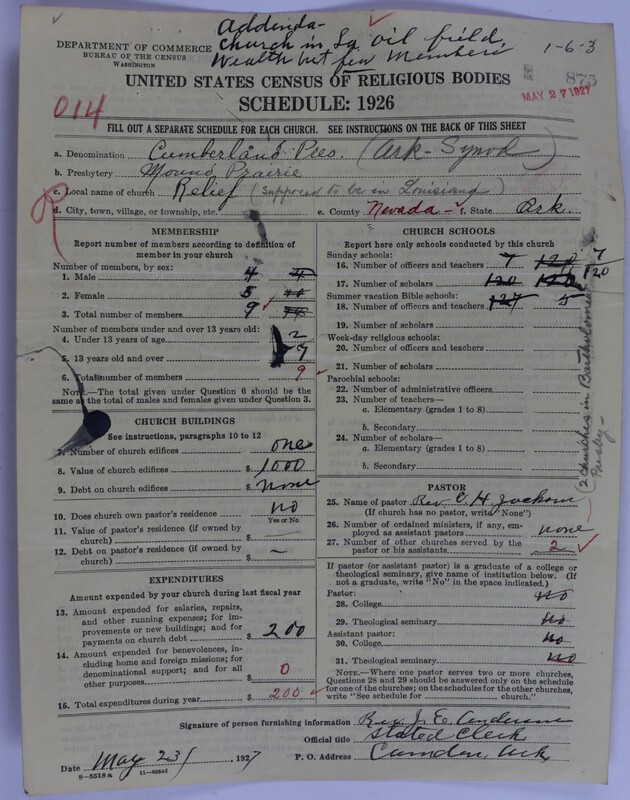 Addenda-
Church in La oil field,
Wealth but few Members
1-6-3
DEPARTMENT OF COMMERCE
BUREAU OF THE CENSUS
WASHINGTON
UNITED STATES CENSUS OF RELIGIOUS BODIES
875
MAY 27 1927
SCHEDULE: 1926
014
FILL OUT A SEPARATE SCHEDULE FOR EACH CHURCH. SEE INSTRUCTIONS ON THE BACK OF THIS SHEET
a. Denomination Cumberland Pres. (Ark-Synod)
b. Presbytery Mound Prairie
c. Local name of church Relief (Supposed to be in Louisiana)
d. City, town, village, or township, etc. e. County Nevada State Ark.
MEMBERSHIP
Report number of members according to definition of
member in your church
Number of members, by sex:
1. Male 4
2. Female 5
3. Total number of members 9
Number of members under and over 13 years old:
4. Under 13 years of age 2
5. 13 years old and over 7
6. Total number of members 9
NOTE.—The total given under Question 6 should be the
same as the total of males and females given under Question 3.
CHURCH BUILDINGS
See instructions, paragraphs 10 to 12
7. Number of church edifices one
8. Value of church edifices $ 1000
9. Debt on church edifices $ none
10. Does church own pastor's residence? no
Yes or No
11. Value of pastor's residence (if owned by
church) $
12. Debt on pastor's residence (if owned by
church) $
EXPENDITURES
Amount expended by your church during last fiscal year
13. Amount expended for salaries, repairs,
and other running expenses; for im-
provements or new buildings; and for
payments on church debt $ 200
14. Amount expended for benevolences, in-
cluding home and foreign missions; for
denominational support; and for all
other purposes $ 0
15. Total expenditures during year $ 200
CHURCH SCHOOLS
Report here only schools conducted by this church
Sunday schools:
16. Number of officers and teachers 7 120 7
17. Number of scholars 120 120
Summer vacation Bible schools:
18. Number of officers and teachers 127 5
19. Number of scholars
Week-day religious schools:
20. Number of officers and teachers
21. Number of scholars
Parochial schools:
22. Number of administrative officers
23. Number of teachers—
a. Elementary (grades 1 to 8)
b. Secondary
24. Number of scholars—
a. Elementary (grades 1 to 8)
b. Secondary
(2 Churches in
PASTOR
25. Name of pastor Rev. C. H. Jackson
(If church has no pastor, write "None")
26. Number of ordained ministers, if any, em-
ployed as assistant pastors none
27. Number of other churches served by the
pastor or his assistants 2
If pastor (or assistant pastor) is a graduate of a college or
theological seminary, give name of institution below. (If
not a graduate, write "No" in the space indicated.)
Pastor:
28. College no
29. Theological seminary no
Assistant pastor:
30. College no
31. Theological seminary no
NOTE.—Where one pastor serves two or more churches,
Questions 28 and 29 should be answered only on the schedule
for one of the churches; on the schedules for the other churches,
write "See schedule for church."
Signature of person furnishing information Rev. J. E. Anderson
Official title Stated Clerk
Date May 23 , 1927 P. O. Address Camden, Ark,
8-5518a